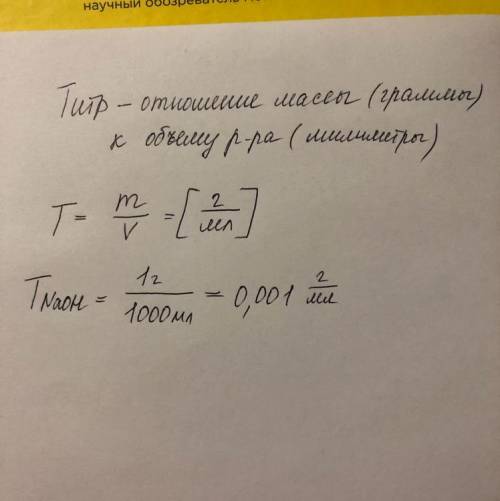 научный обозреватель
Титр – отношение массы (граммы)
к объему р-ра (милиметры)
T = m/V = [г/мл]
T NaOH = 1г/1000мл = 0,001 г/мл